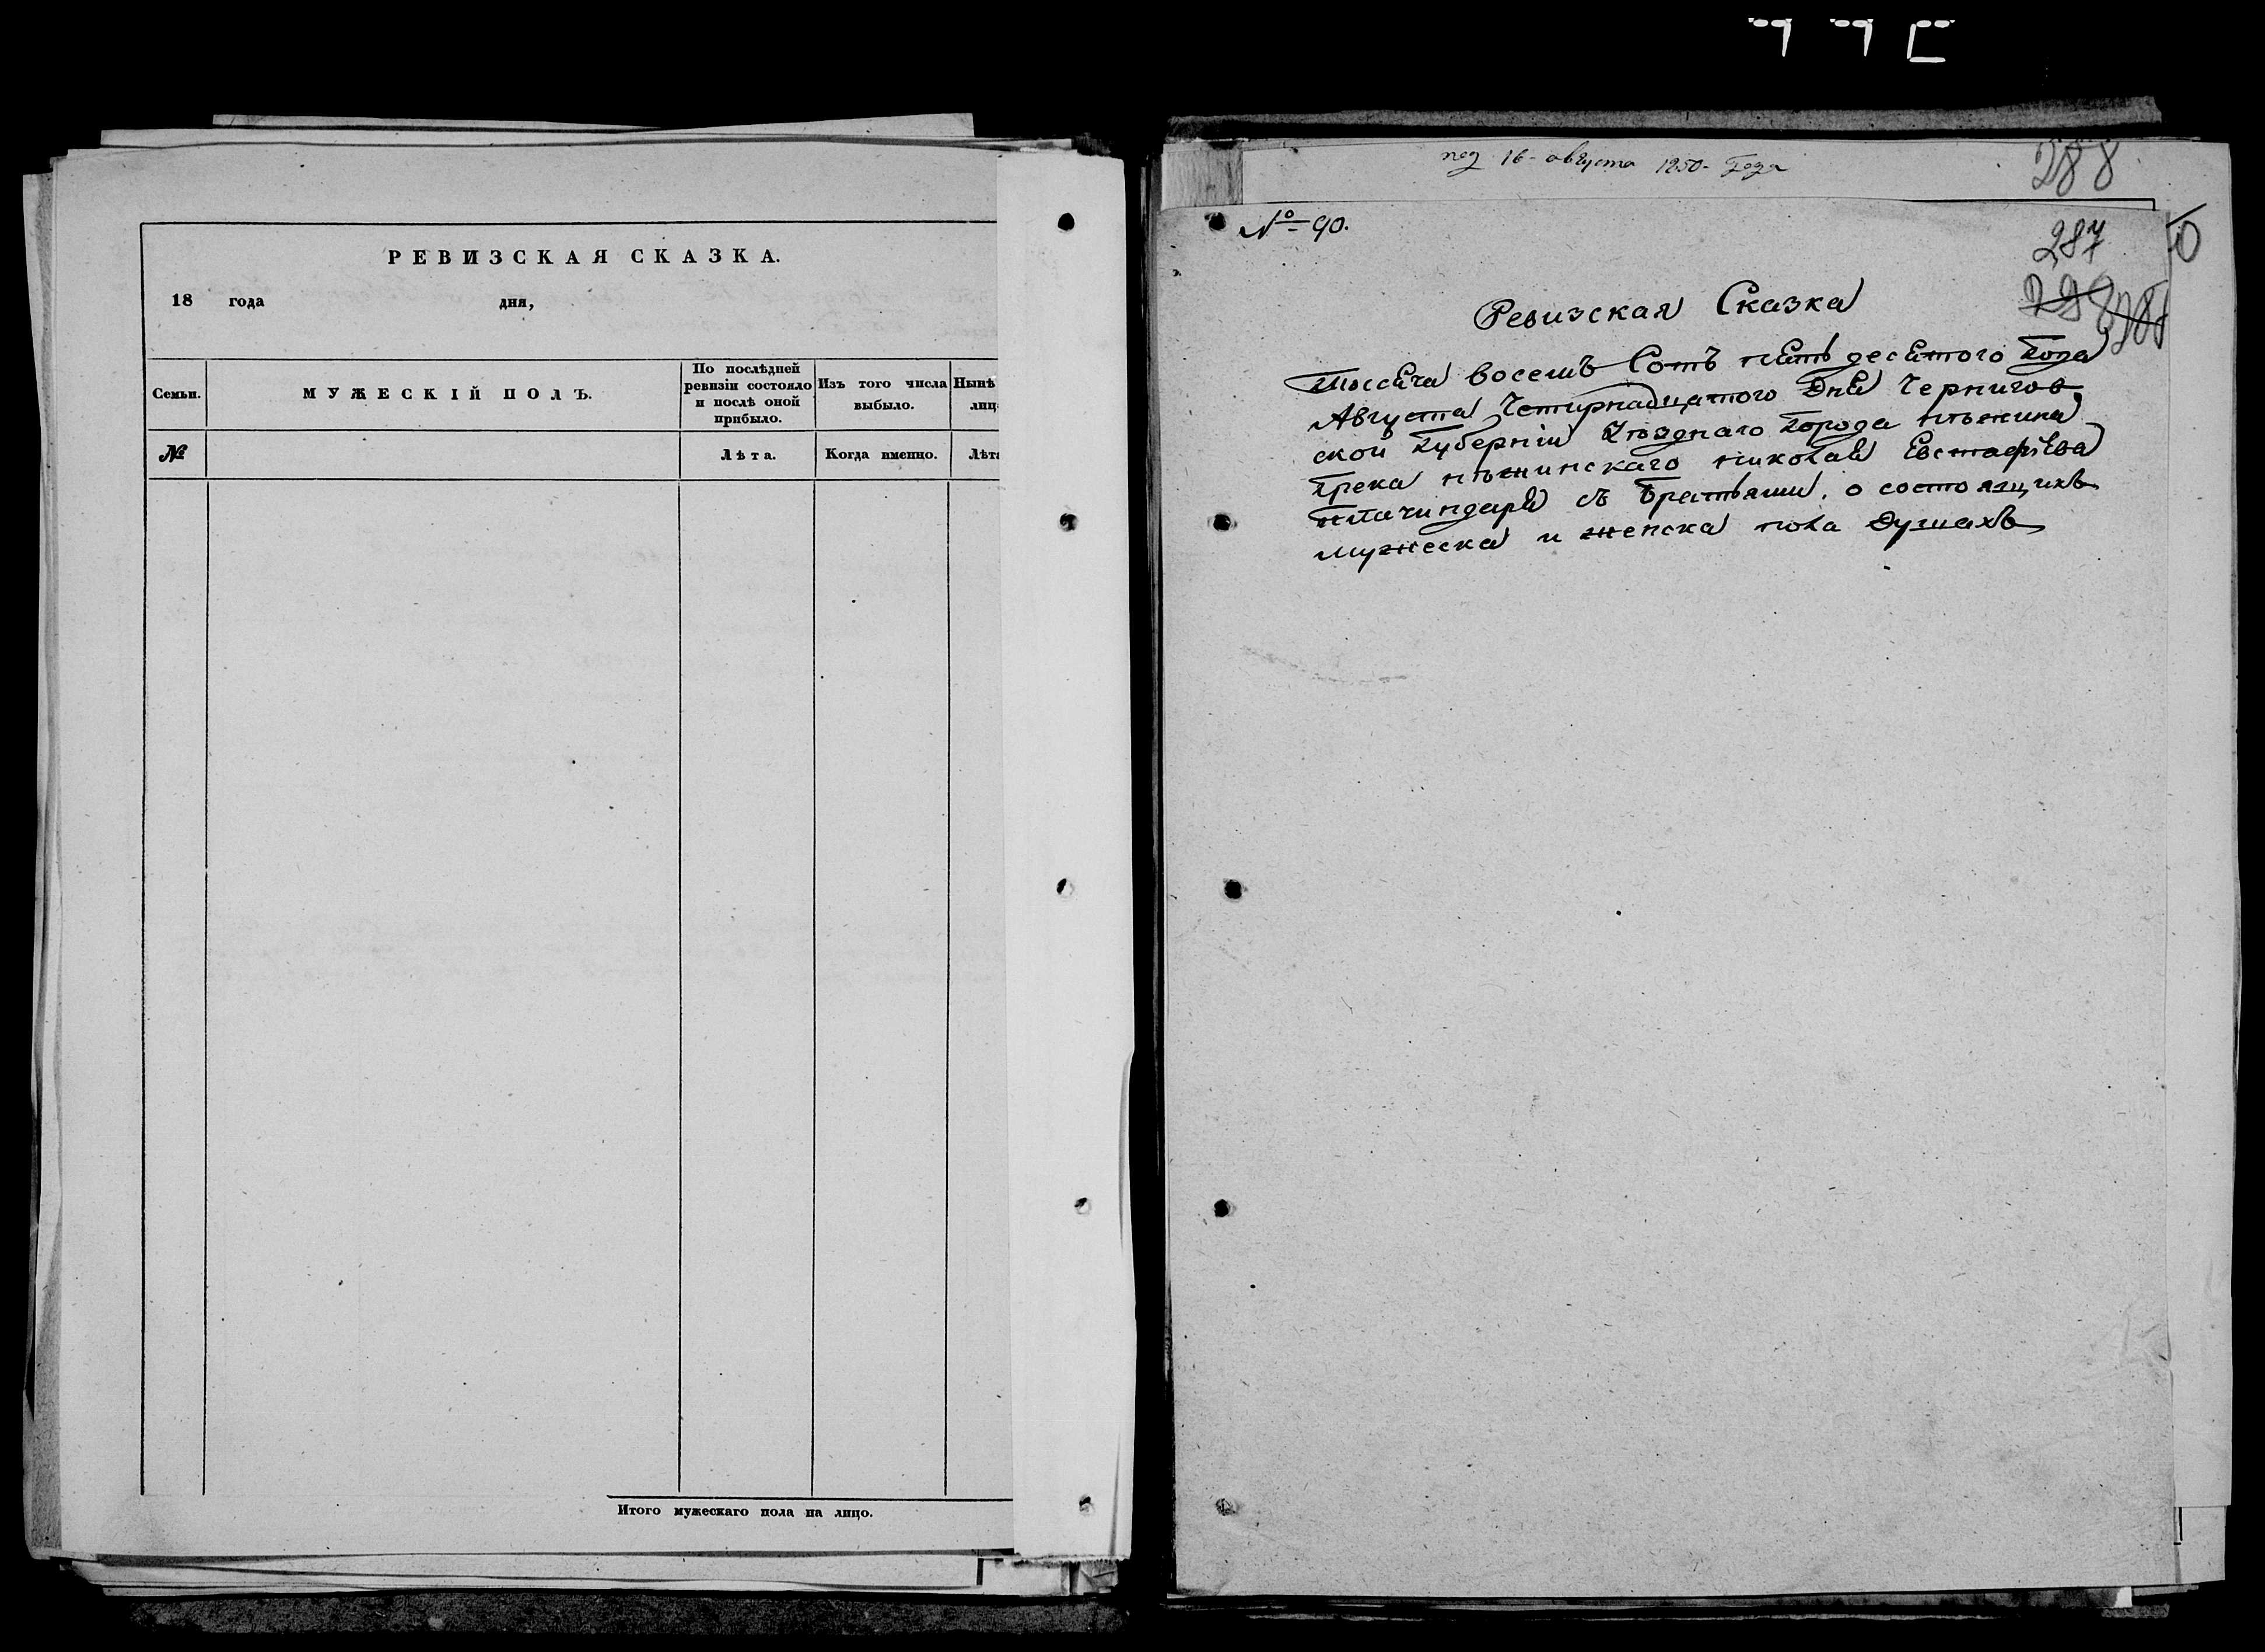 РЕВИЗСКАЯ СКАЗКА.
18 года дня,
Семьи.
МУЖЕСКІЙ ПОЛЪ.
По послѣдней
ревизіи состояло
и послѣ оной
прибыло.
Изъ того числа
выбыло.
Нынѣ
лиц
№
Лѣта.
Когда именно.
Лѣт
Итого мужескаго пола на лицо.
под 16-августа 1850-года
288
№ 90.
287
Ревизская Сказка
тысеча восемъ сотъ пять десятого года
Августа Четирнадцатого Дня Чернигов
ской Губерніи Уѣзднаго Города Нѣжина
Грека нѣжинскаго николая Евстафіева
съ братьями, о состоящихъ
мужеска и женска пола душахъ